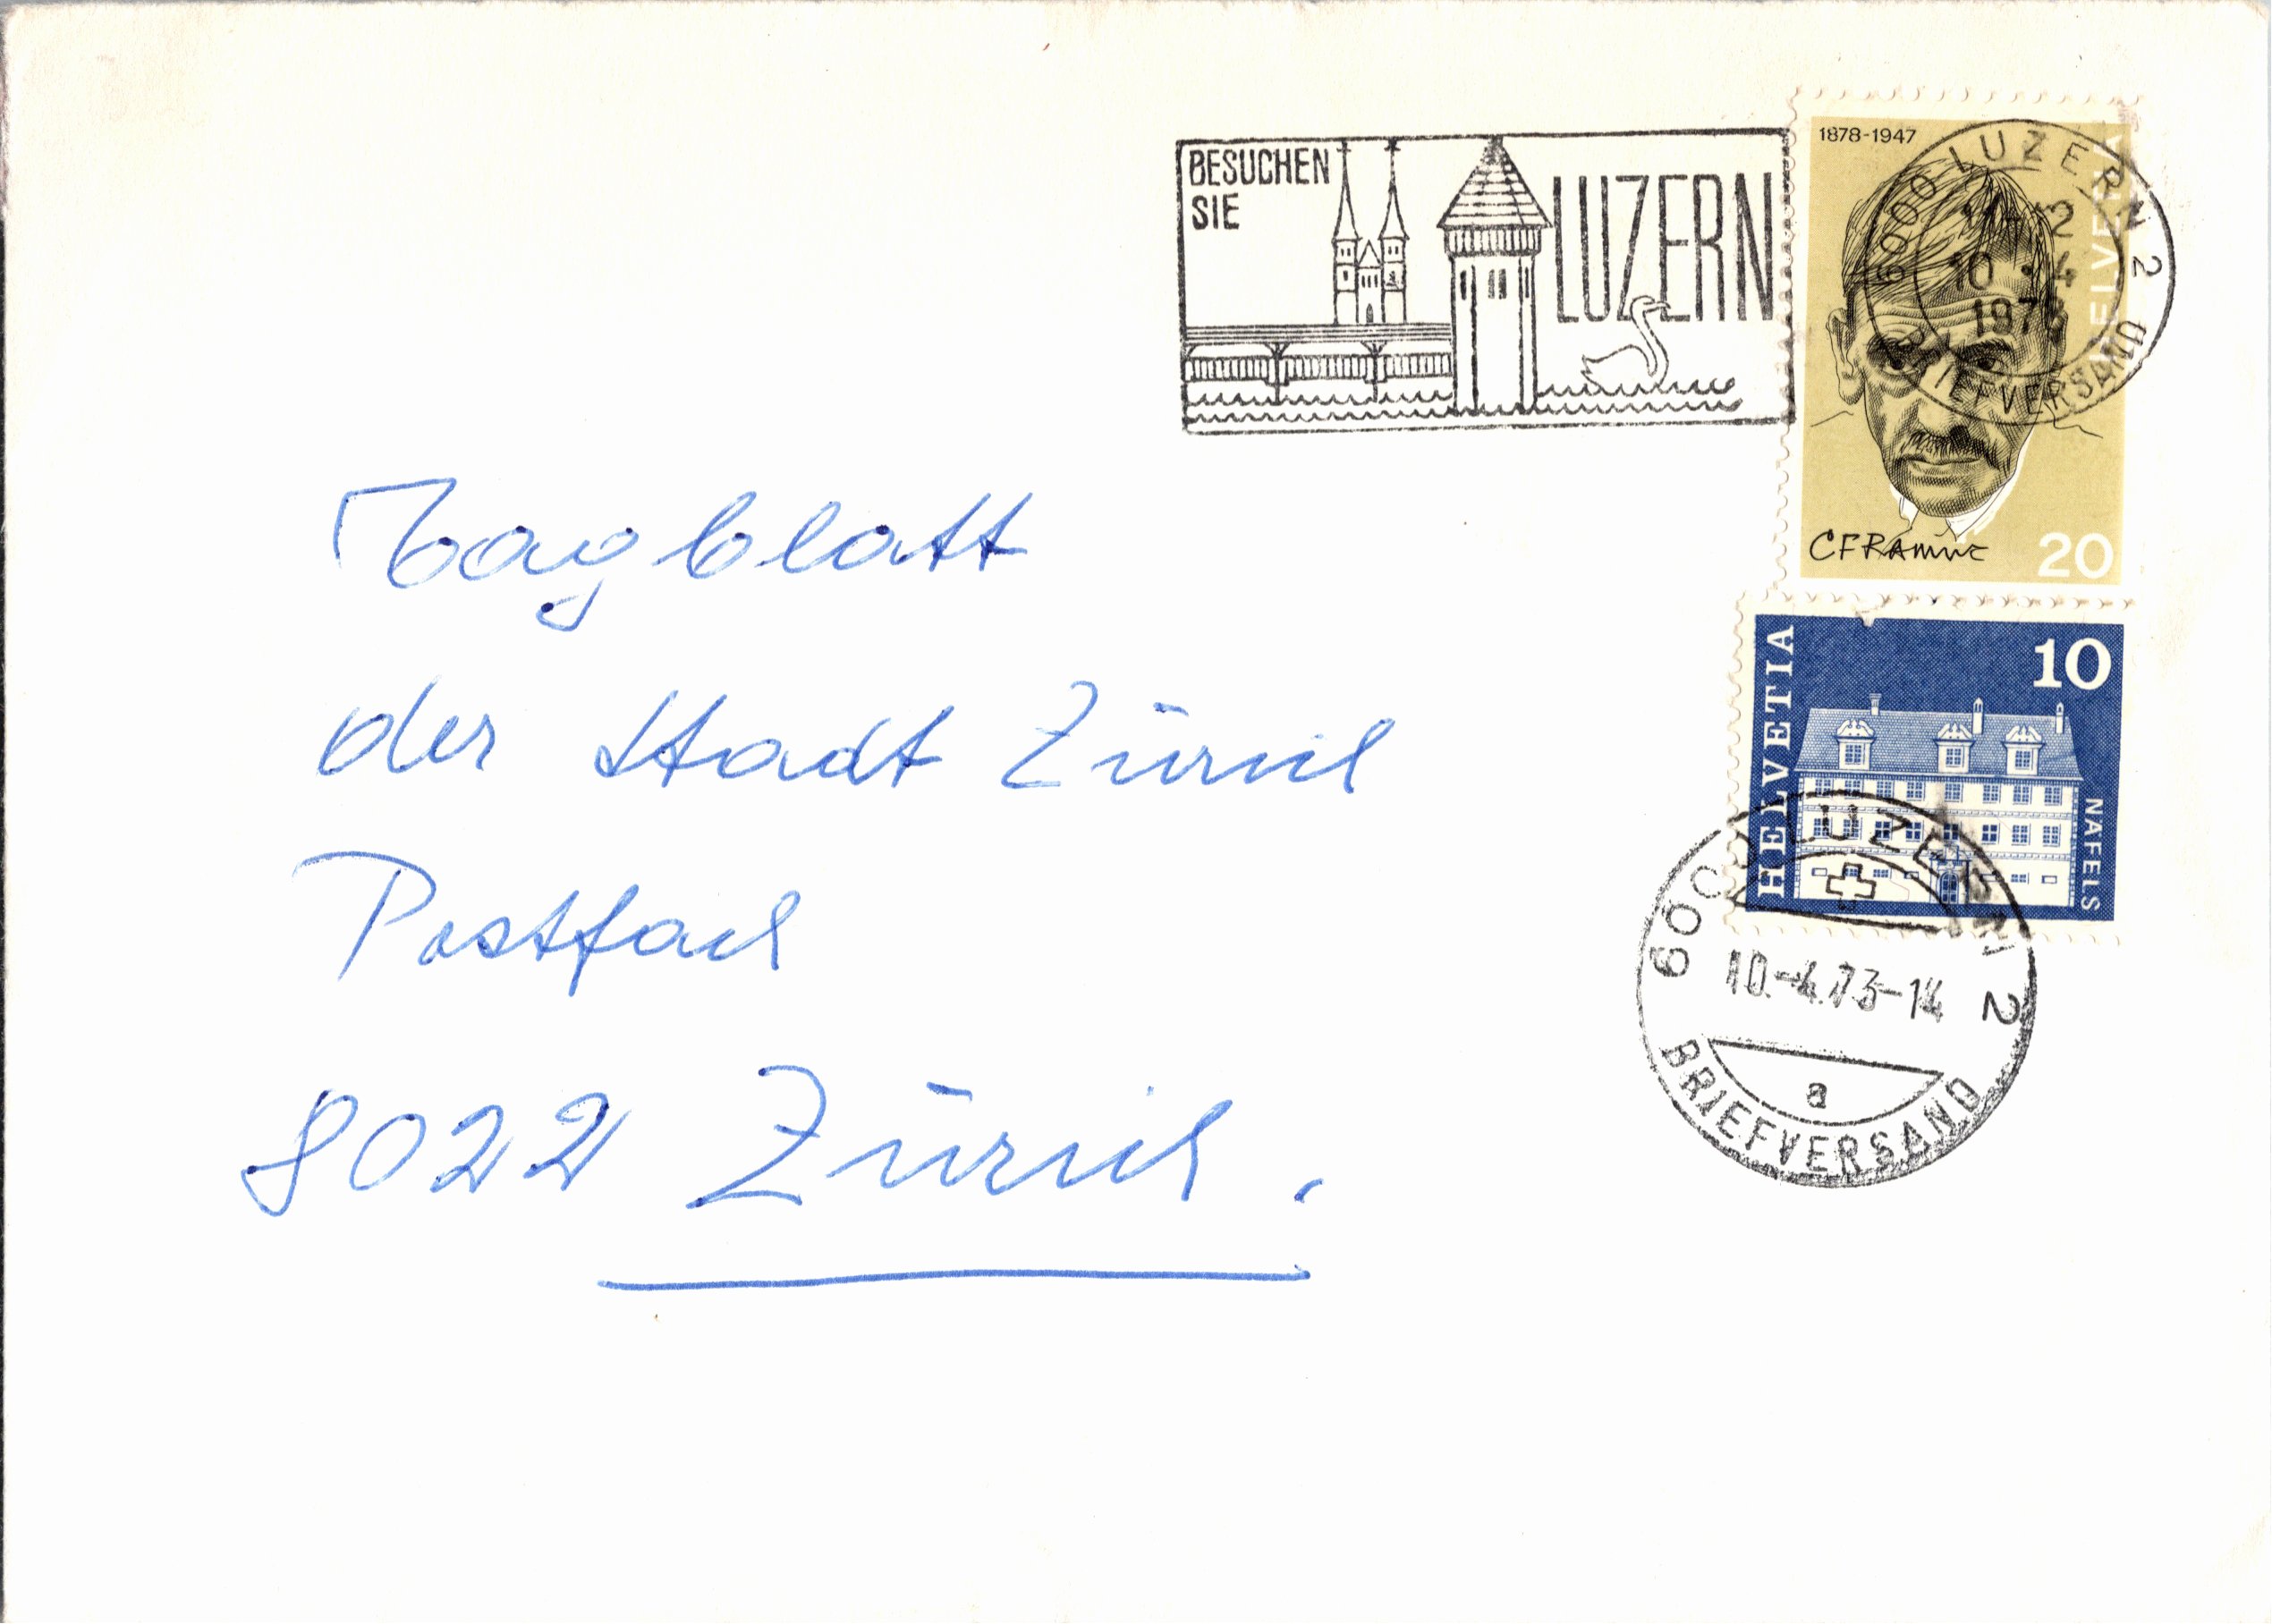 BESUCHEN
SIE
LUZERN
1878-1947
HELVETIA
6000 LUZERN 2
10.4
1973
BRIEFVERSAND
CFRamuz
20
HELVETIA
10
NÄFELS
6000 LUZERN 2
10.-4.73-14
a
BRIEFVERSAND
Tagblatt
der Stadt Zürich
Postfach
8022 Zürich.